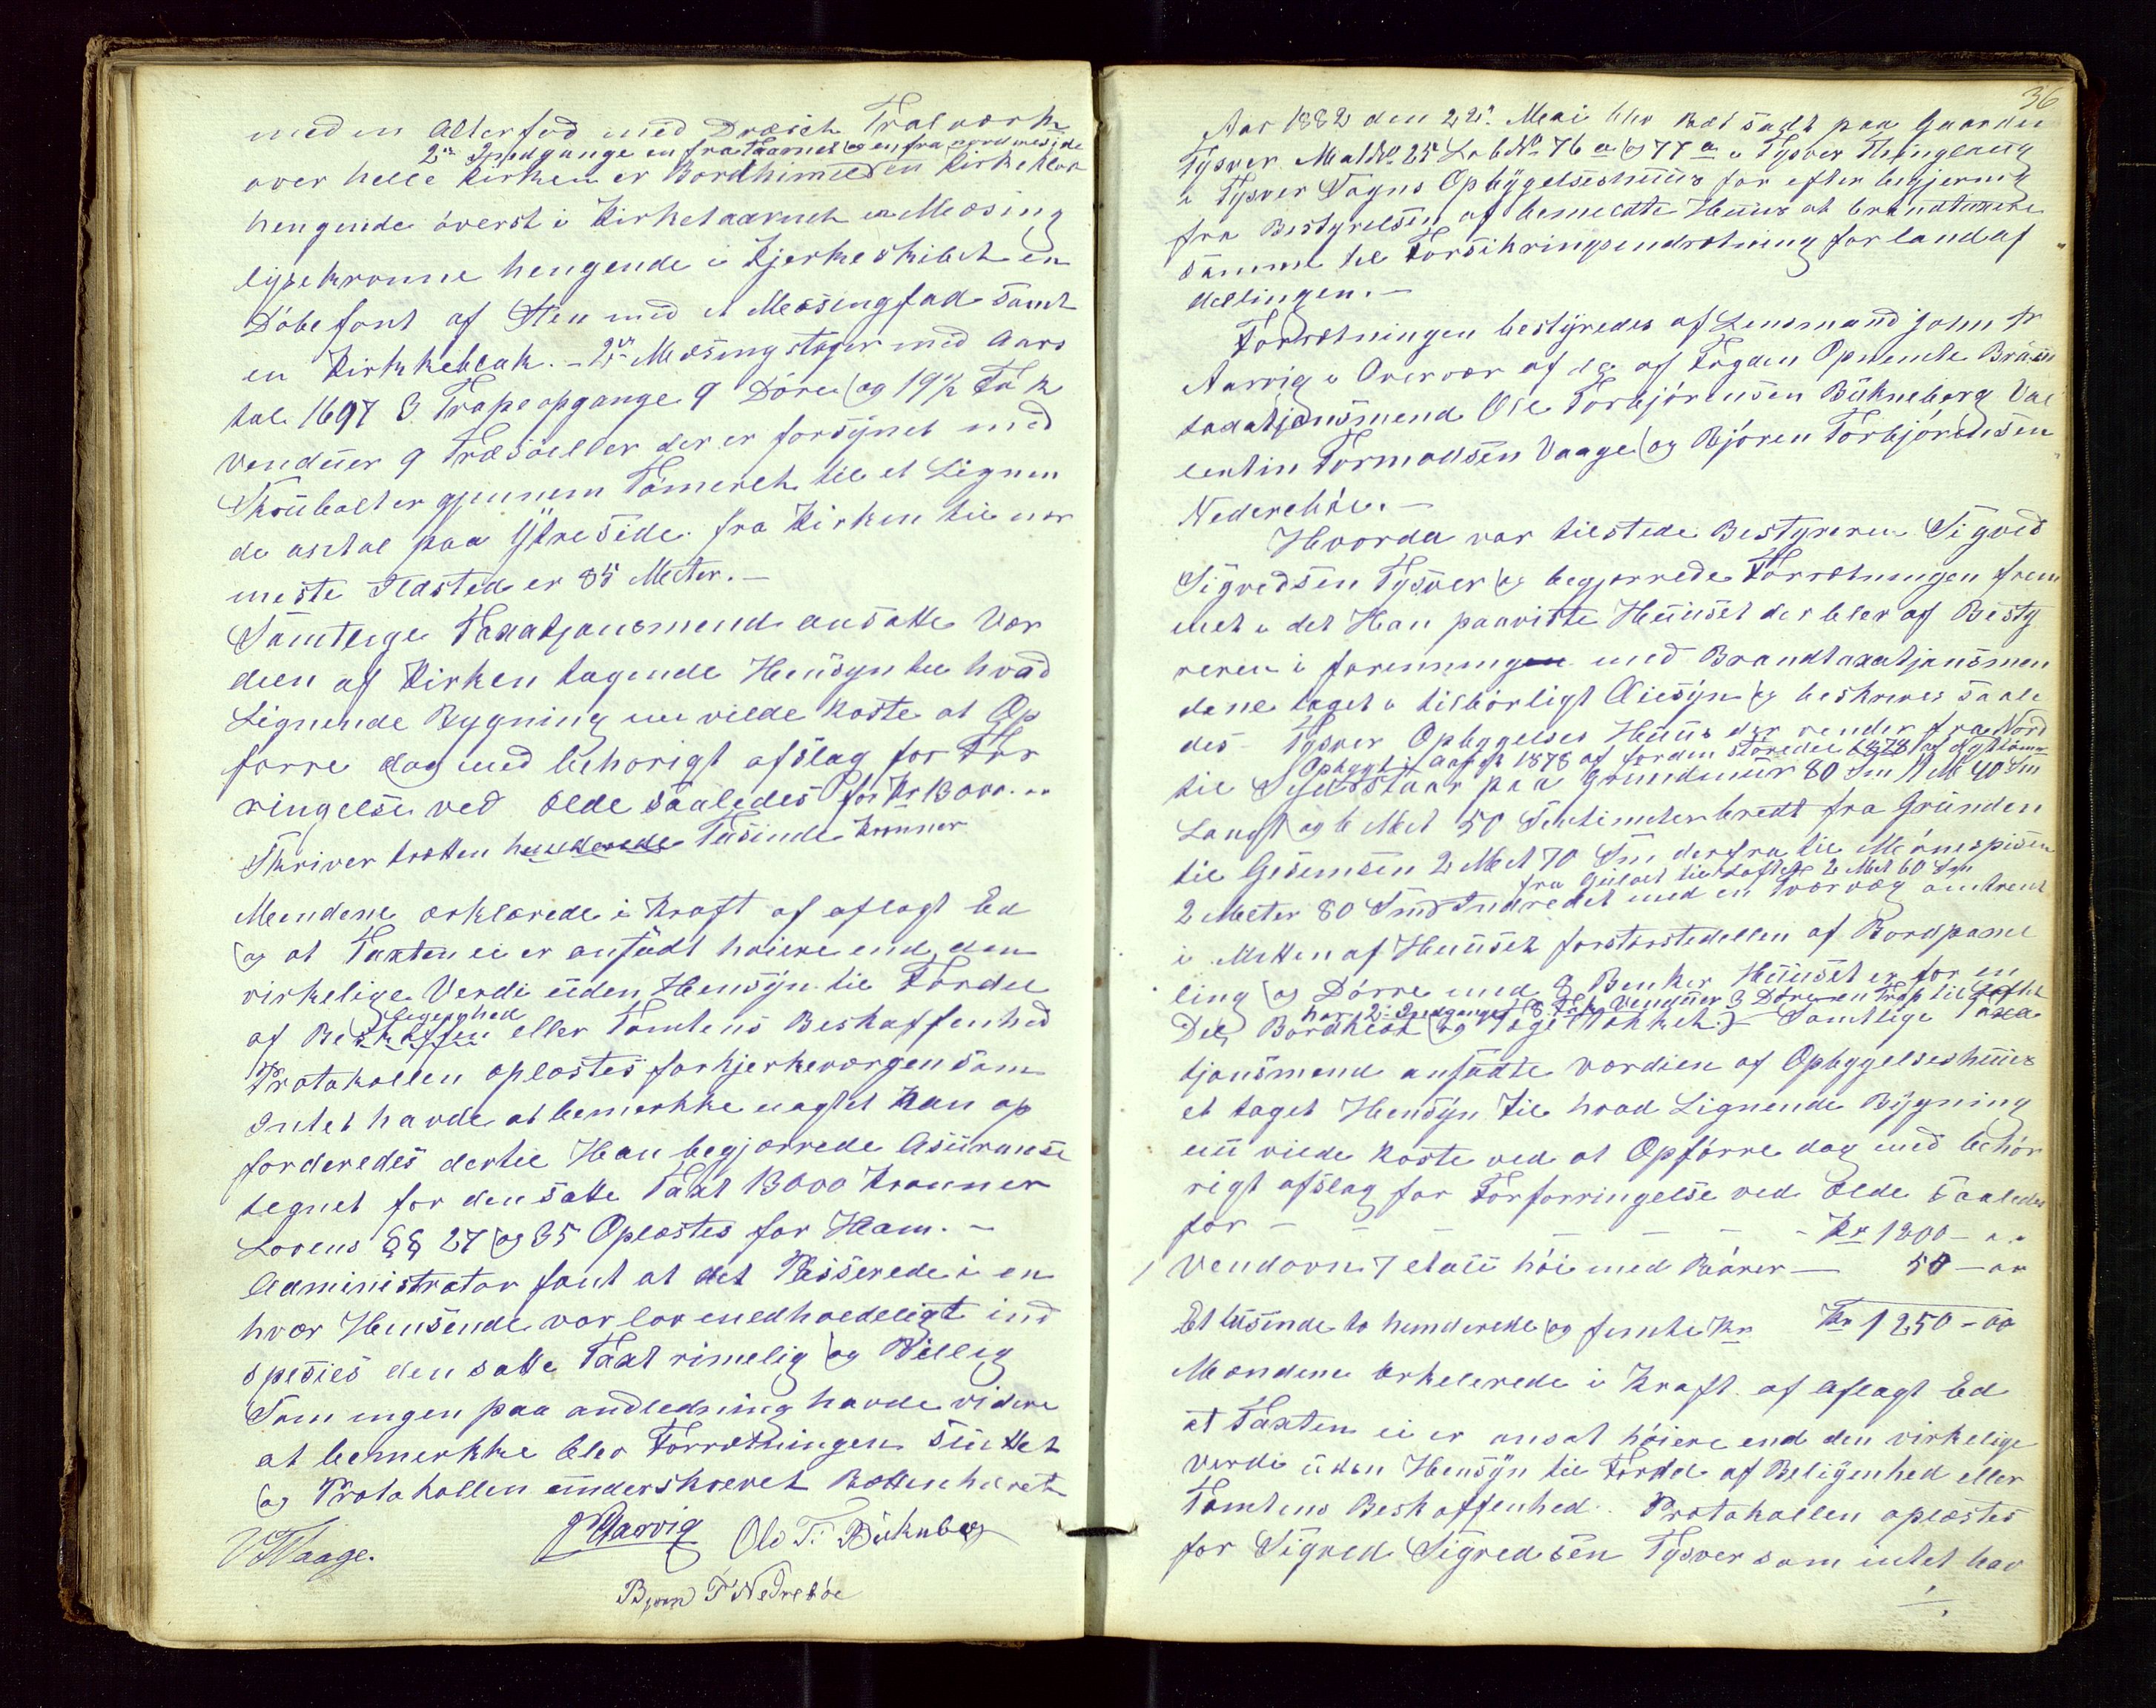 med en Alterfod med Dræiet Tralværk
2de Indgange en fra Taarnet og en fra nordresside
over hele Kirken er Bordhimel en Kirkeklok
hengende øverst i Kirketaarnet en Mesing
lysekronne hengende i Kjerkeskibet en
Døbefont af Sten med et Messingfad samt
en Kirkkeblok. – 2de Mesingstager med Aars
tal 1697 3 Trapeopgange 9 Døre og 19½ Fak
Venduer 9 Træsøiller der er forsynet med
Skrubolter gjennem Tømeret til et Lignen
de antal paa Ytreside. fra Kirken til nær
meste Ildsted er 85 Meter. –
Samtlige Taxatjonsmend ansatte Vær
dien af Kirken tagende Hensyn til hvad
Lignende Bygning nu vilde koste at Op
førre dog med behorigt afslag for For
ringelse ved Ælde saaledes for Kr 13000. ..
Skriver tretten hunderede Tusinde Kronner
Mendene erklærede i Kraft af aflagt Ed
og at Taxten ei er ansadt høiere end den
virkelige Verdi uden Hensyn til Fordel
ligenhed
af Beskaffen eller Tomtens Beskaffenhed
Protokollen oplæstes for kjerkeværgen som
Intet havde at bemerkke uagtet Han op
forderedes dertil Han begjærrede Asuranse
tegnet for den satte Taxt 13000 Kronner
Lovens §§ 27 og 35 Oplæstes for Ham. –
Administrator fant at det Passerede i en
hver Hensende var lovmedholdeligt ind
spesies den satte Taxt rimelig og Billig
Som ingen paa andledning havde videre
at bemerkke blev Forretningen sluttet
og Protokollen underskrevet Retten hævet
VTVaage. JPAarvig Ole T. Bukneberg
Bjørn T Nedrebøe
36
Aar 1882 den 22de Mai blev Ret sadt paa Gaarden
Tysver Mat No 25 Lob No 76 a og 77 a i Tysver Thinglaug
i Tysver Sogns Opbygelseshuus for efter begjering
fra Bestyrelsen af bemeldte Huus at brandtaxere
samme til Forsikringsindretning for landaf
dellingen. –
Forretningen bestyredes af Lensmand John P
Aarvig i Overvær af de af Fogden Opnemte Brann
taxatjonsmend Ole Torbjørnsen Bukneberg Val
lentin Tormodsen Vaage og Bjøren Torbjørensen
Nederebøe. –
Hvorda var tilstede Bestyreren Sigved
Sigvedsen Tysver og begjerrede Forretningen frem
met i det Han paaviste Huuset der blev af Besty
reren i forenningen med Brandtaxatjonsmen
dene taget i tilbørligt Øiesyn og beskreves saale
des – Tysver Opbyggelses Huus der vender fra Nord
Opbygt i Aaret 1878 af for den støredel 1878 af nyt tømer
til Syd staar paa Grundmuur 80 Sm 11 M 40 Sm
Langt og 6 Met 50 Sentimeter bredt fra Grunden
til Gesimsen 2 Met 70 Sm derfra til Mønespisen
fra Gulvet til Loftet 2 Met 60 Sm
2 Meter 80 Sm Indredet med en Tværvæg omtrent
i Mitten af Huuset forstørstedellen af Bordpane
ling og Dørre med 8 Benker Huuset er for en
har 2 Indganger 8 Fak Venduer 3 Døre en Trap til Loftet
Del Bordklæt og Tegeltækket. – Samtlige Taxa
tjonsmend ansatte værdien af Opbyggelseshuus
et taget Hensyn til hvad Lignende Bygning
nu vilde koste ved at Opførre dog med behør
rigt afslag for Forforringelse ved Ælde saaledes
for – – – – – – Kr 1200 – ..
1 Vendovn 7 etasi høi med Rører — 50 – ..
Et tusinde to hunderede og femti Kr Kr 1250 – 00
Mændene erkelerede i Kraft af aflagt Ed
at Taxten ei er ansat høiere end den virkelige
verdi uden Hensyn til Fordel af Beligenhed eller
Tomtens Beskaffenhed. Protokollen oplæstes
for Sigved Sigvedsen Tysver som intet hav